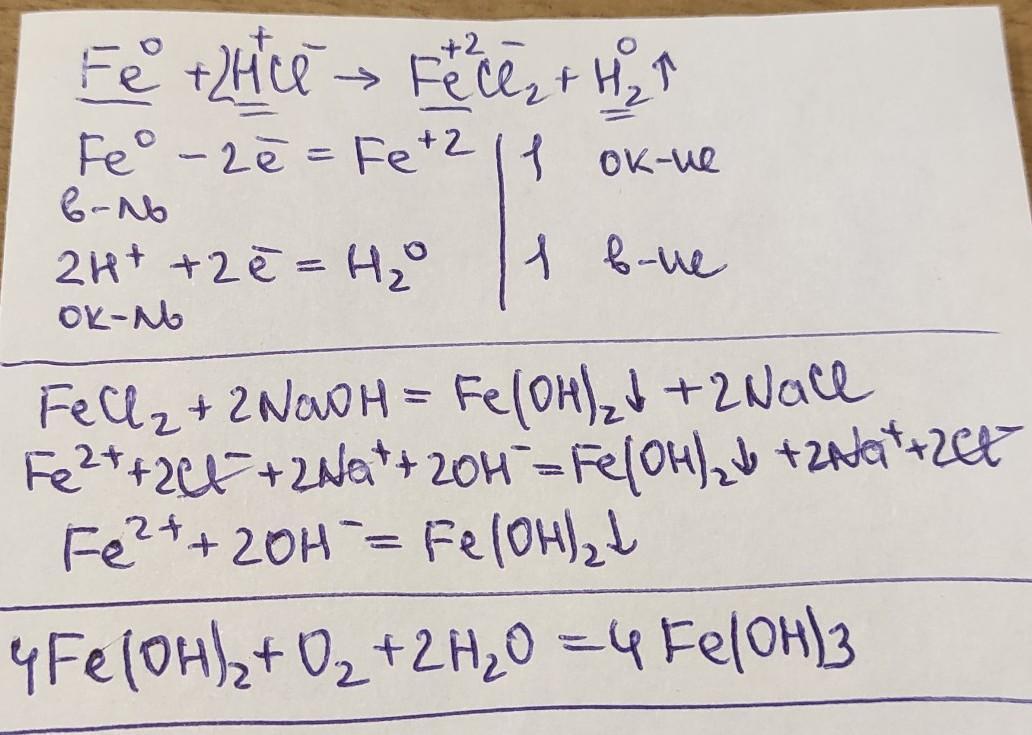 Fe⁰ + 2H⁺Cl⁻ → Fe⁺²Cl⁻₂ + H₂⁰↑
Fe⁰ - 2ē = Fe⁺² | 1 ок-ие
в-ль
2H⁺ + 2ē = H₂⁰ | 1 в-ие
ок-ль
FeCl₂ + 2NaOH = Fe(OH)₂↓ + 2NaCl
Fe²⁺ + 2Cl⁻ + 2Na⁺ + 2OH⁻ = Fe(OH)₂↓ + 2Na⁺ + 2Cl⁻
Fe²⁺ + 2OH⁻ = Fe(OH)₂↓
4Fe(OH)₂ + O₂ + 2H₂O = 4Fe(OH)3